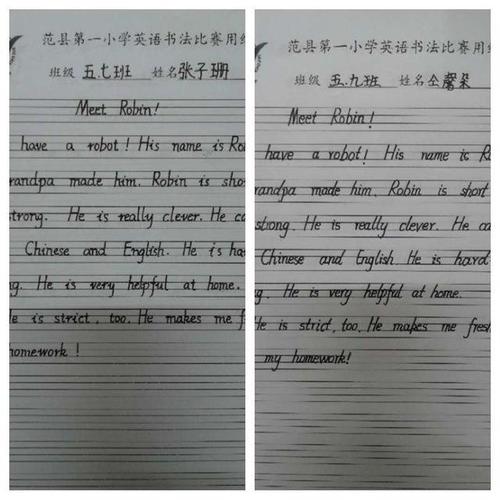 范县第一小学英语书法比赛用
班级 五.七班 姓名 张子珊
Meet Robin!
have a robot! His name is Ro
randpa made him. Robin is sho
strong. He is really clever. He ca
Chinese and English. He is ha
g. He is very helpful at home.
He is strict, too. He makes me f
homework!
范县第一小学英语书法比赛用
班级 五.九班 姓名 仝馨朵
Meet Robin!
have a robot! His name is R
randpa made him. Robin is short
strong. He is really clever. He ca
Chinese and English He is hard
g. He is very helpful at home.
He is strict, too. He makes me fres
my homework!